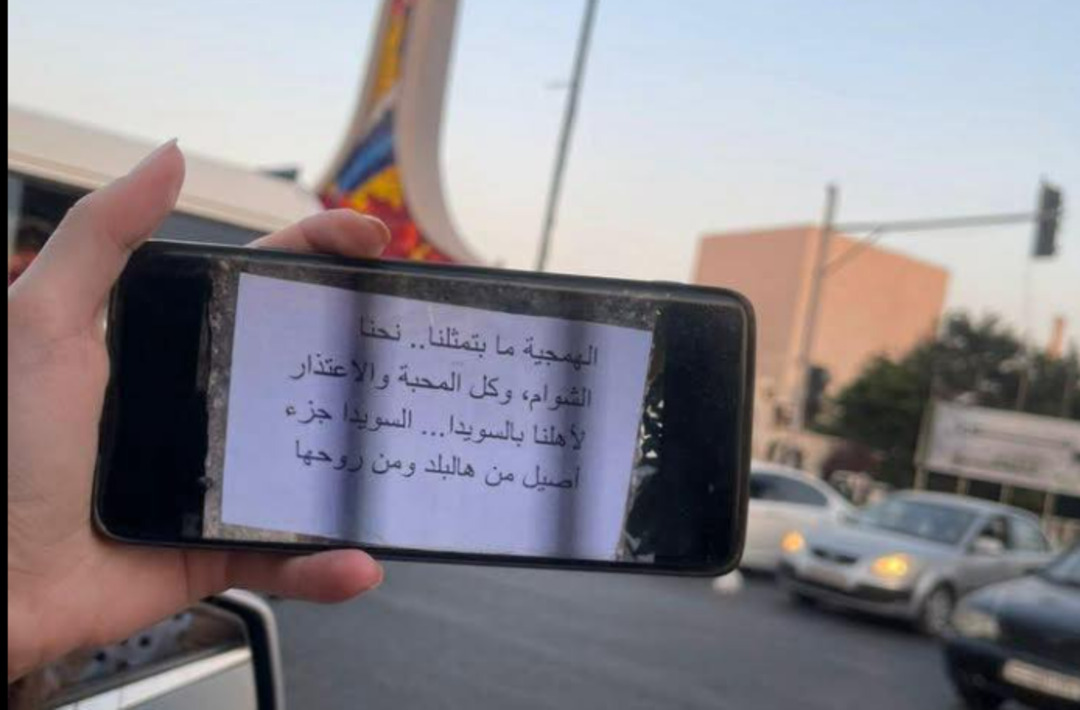 الهمجية ما بتمثلنا.. نحنا
الشوام، وكل المحبة والاعتذار
لأهلنا بالسويدا... السويدا جزء
أصيل من هالبلد ومن روحها